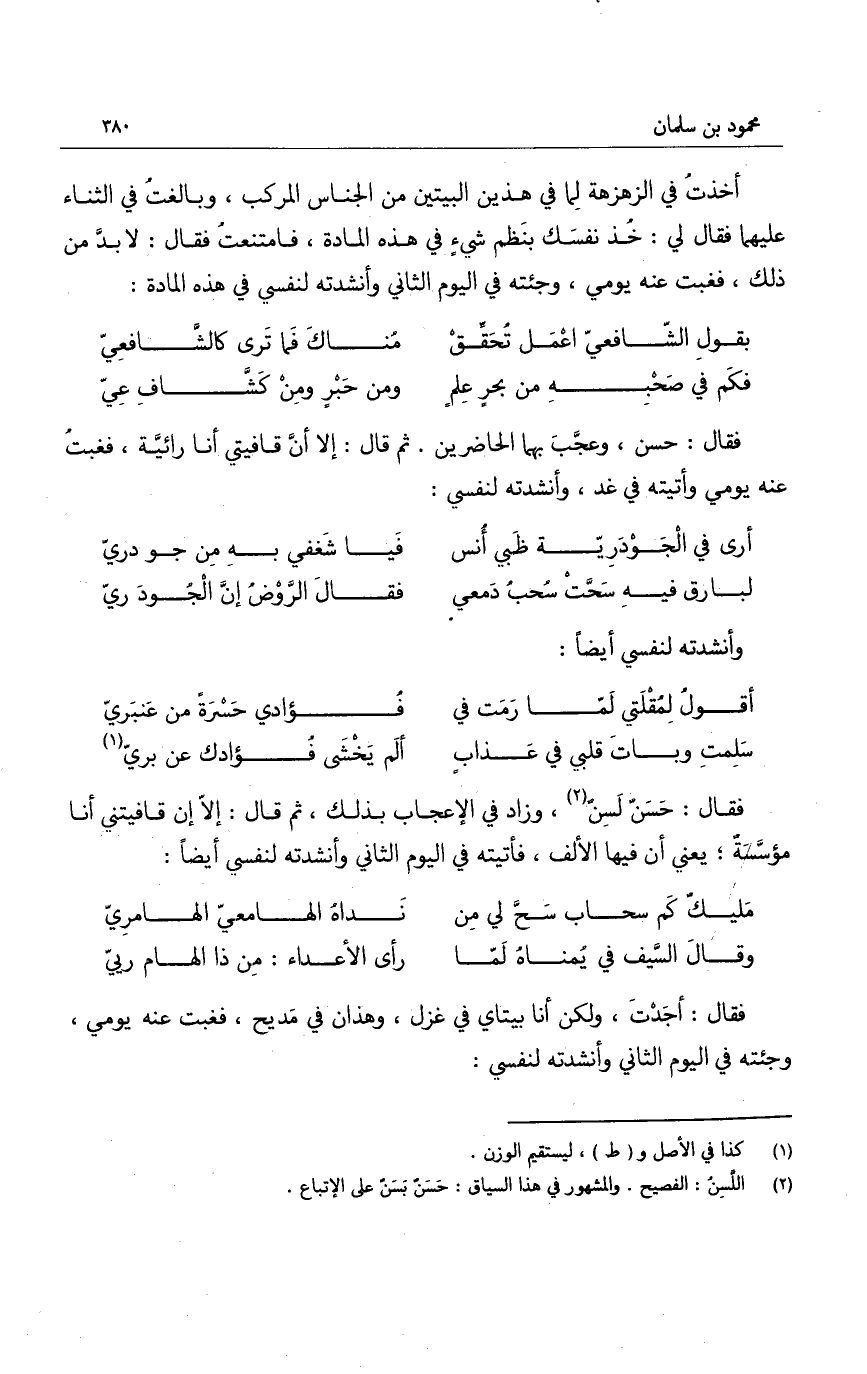 محمود بن سلمان ٣٨٠
أخذتُ في الزهزهة لِما في هذين البيتين من الجناس المركب ، وبالغتُ في الثناء
عليهما فقال لي : خُذ نفسَك بنَظم شيءٍ في هذه المادة ، فامتنعتُ فقال : لا بدَّ من
ذلك ، فغبت عنه يومي ، وجئته في اليوم الثاني وأنشدته لنفسي في هذه المادة :
بقول الشّافعيّ اعْمَل تُحَقِّقْ مُناكَ فَما تَرى كالشَّافعِيّ
فكَم في صَحْبِهِ من بحرِ عِلمٍ ومن حَبْرٍ ومِنْ كَشَّافِ عِيّ
فقال : حسن ، وعجَّبَ بهما الحاضرين . ثم قال : إلا أنَّ قافيتي أنا رائيَّة ، فغبتُ
عنه يومي وأتيته في غد ، وأنشدته لنفسي :
أرى في الْجَوْدَرِيّة ظَبي أُنس فَيا شَغفي به مِن جو دريّ
لبارق فيه سَحَّتْ سُحبُ دَمعي فقالَ الرَّوْضُ إنَّ الْجُودَ ريّ
وأنشدته لنفسي أيضاً :
أقولُ لِمُقْلَتي لَمّا رَمَت في فُؤادي حَسْرَةً من عَنبَريّ
سَلِمتِ وباتَ قلبي في عَذابٍ ألَم يَخْشَى فُؤادك عن بريّ(١)
فقال : حَسَنٌ لَسِنٌ(٢) ، وزاد في الإعجاب بذلك ، ثم قال : إلاّ إن قافيتني أنا
مؤسَّسَةٌ ؛ يعني أن فيها الألف ، فأتيته في اليوم الثاني وأنشدته لنفسي أيضاً :
مَليكٌ كَم سحاب سَحَّ لي مِن نَداهُ الهامعيّ الهامِريّ
وقالَ السَّيف في يُمناهُ لَمّا رأى الأعداء : مِن ذا الهام ربيّ
فقال : أجَدْتَ ، ولكن أنا بيتاي في غزل ، وهذان في مَديح ، فغبت عنه يومي ،
وجئته في اليوم الثاني وأنشدته لنفسي :
(١) كذا في الأصل و ( ط ) ، ليستقيم الوزن .
(٢) اللَّسِنُ : الفصيح . والمشهور في هذا السياق : حَسَنٌ بَسَنٌ على الإتباع .